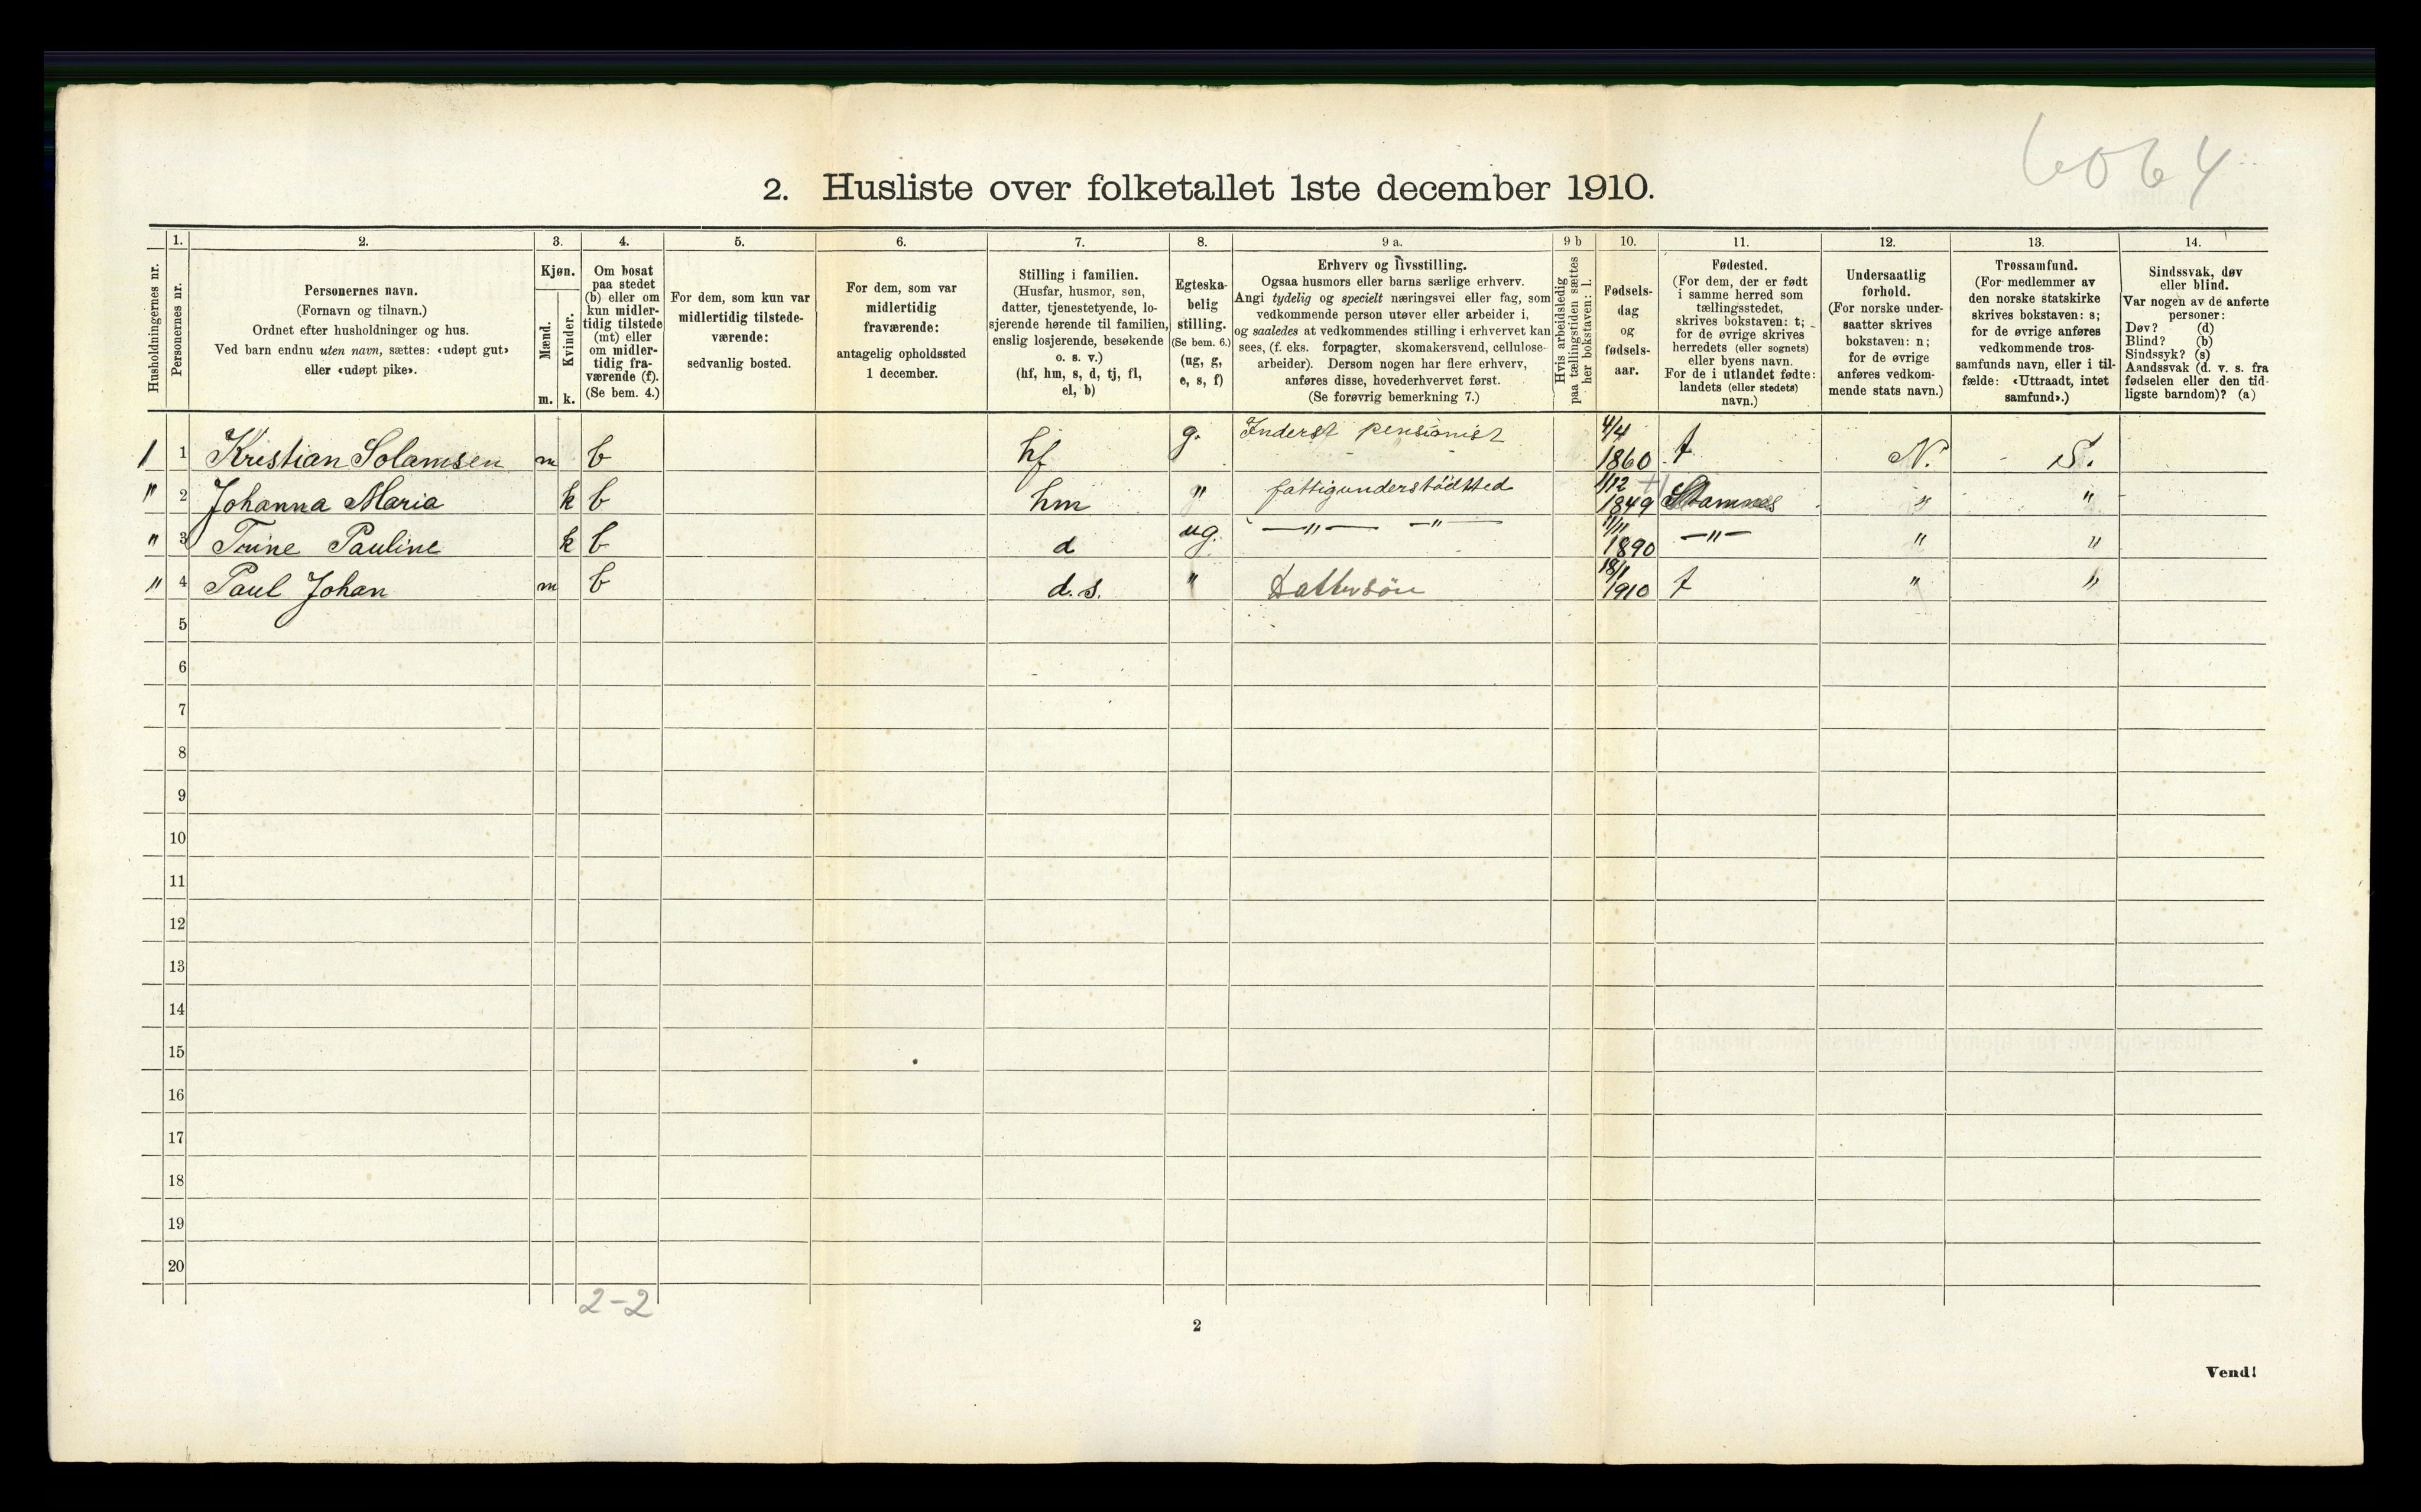 6064
2. Husliste over folketallet 1ste december 1910.
Husholdningernes nr.
1. Personernes nr.
2. Personernes navn.
(Fornavn og tilnavn.)
Ordnet efter husholdninger og hus.
Ved barn endnu uten navn, sættes: «udøpt gut»
eller «udøpt pike».
3. Kjøn.
Mænd. m.
Kvinder. k.
4. Om bosat
paa stedet
(b) eller om
kun midler-
tidig tilstede
(mt) eller
om midler-
tidig fra-
værende (f).
(Se bem. 4.)
5. For dem, som kun var
midlertidig tilstede-
værende:
sedvanlig bosted.
6. For dem, som var
midlertidig
fraværende:
antagelig opholdssted
1 december.
7. Stilling i familien.
(Husfar, husmor, søn,
datter, tjenestetyende, lo-
sjerende hørende til familien,
enslig losjerende, besøkende
o. s. v.)
(hf, hm, s, d, tj, fl,
el, b)
8. Egteska-
belig
stilling.
(Se bem. 6.)
(ug, g,
e, s, f)
9 a. Erhverv og livsstilling.
Ogsaa husmors eller barns særlige erhverv.
Angi tydelig og specielt næringsvei eller fag, som
vedkommende person utøver eller arbeider i,
og saaledes at vedkommendes stilling i erhvervet kan
sees, (f. eks. forpagter, skomakersvend, cellulose-
arbeider). Dersom nogen har flere erhverv,
anføres disse, hovederhvervet først.
(Se forøvrig bemerkning 7.)
9 b Hvis arbeidsledig
paa tællingstiden sættes
her bokstaven: l.
10. Fødsels-
dag
og
fødsels-
aar.
11. Fødested.
(For dem, der er født
i samme herred som
tællingsstedet,
skrives bokstaven: t;
for de øvrige skrives
herredets (eller sognets)
eller byens navn.
For de i utlandet fødte:
landets (eller stedets)
navn.)
12. Undersaatlig
forhold.
(For norske under-
saatter skrives
bokstaven: n;
for de øvrige
anføres vedkom-
mende stats navn.)
13. Trossamfund.
(For medlemmer av
den norske statskirke
skrives bokstaven: s;
for de øvrige anføres
vedkommende tros-
samfunds navn, eller i til-
fælde: «Uttraadt, intet
samfund».)
14. Sindssvak, døv
eller blind.
Var nogen av de anførte
personer:
Døv? (d)
Blind? (b)
Sindssyk? (s)
Aandssvak (d. v. s. fra
fødselen eller den tid-
ligste barndom)? (a)
1 1 Kristian Solamsen m b hf g. Inderst pensionist 4/4 1860 t N. S.
" 2 Johanna Maria k b hm " fattigunderstödtted 1/12 1849 Stamnes " "
" 3 Trine Pauline k b d ug. —"— —"— 11/11 1890 —"— " "
" 4 Paul Johan m b d.s. " Dattersön 18/1 1910 t " "
5
6
7
8
9
10
11
12
13
14
15
16
17
18
19
20
2-2
2
Vend!